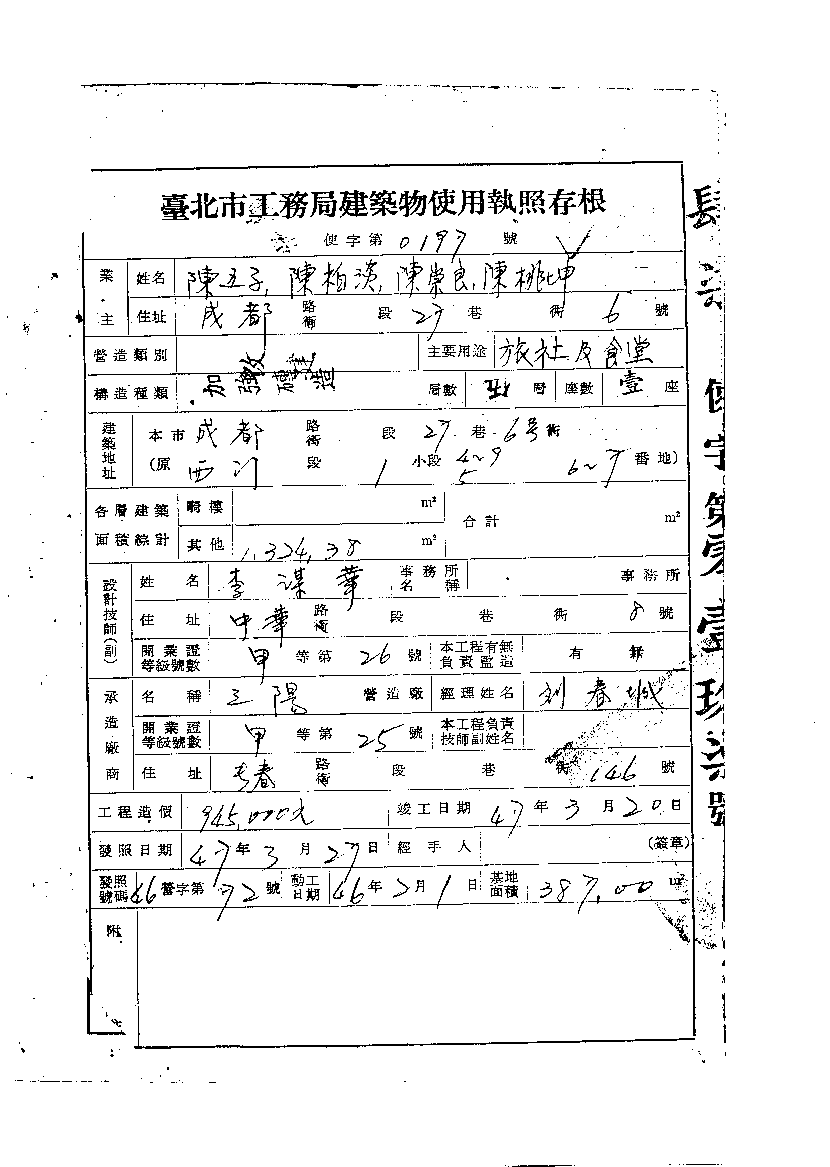 臺北市工務局建築物使用執照存根
使字第0197號
業主 姓名 陳五子、陳柏淡、陳崇良、陳桃坤
住址 成都 路街 段 27 巷 衖 6 號
營造類別 主要用途 旅社及食堂
構造種類 加強磚造 層數 五 層 座數 壹 座
建築地址 本市 成都 路街 段 27 巷 6號 衖
(原 西門 段 1 小段 4~9 5 6~7 番地)
各層建築面積綜計 騎樓 m² 合計 m²
其他 1,324.38 m²
設計技師(副) 姓名 李謀華 事務所名稱 事務所
住址 中華 路街 段 巷 衖 8 號
開業證等級號數 甲 等第 26 號 本工程有無負責監造 有 無
承造廠商 名稱 三陽 營造廠 經理姓名 劉春城
開業證等級號數 甲 等第 25 號 本工程負責技師副姓名
住址 長春 路街 段 巷 衖 146 號
工程造價 945,000元 竣工日期 47年3月20日
發照日期 47年3月27日 經手人 (簽章)
發照號碼 46 營字第 72 號 動工日期 46年2月1日 基地面積 387.00 m²
附
肆柒 使字第零壹玖柒號